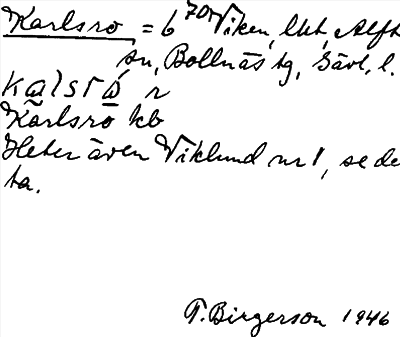 Karlsro = 6⁷⁰ Viken, lht, Alft
sn, Bollnäs tg, Gävl. l.
kalsrὼ r
Karlsro kb
Heter även Viklund nr 1, se de
ta.
T. Birgerson 1946